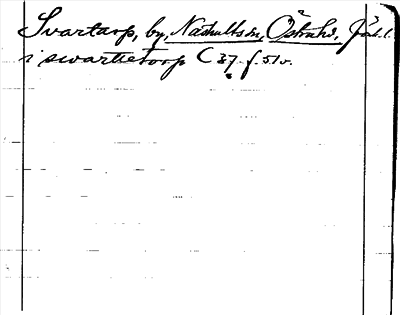 Svartarp, by, Näshults sn, Östra hd, Jönk. l.
i swartetorp C 37 f. 51 v.